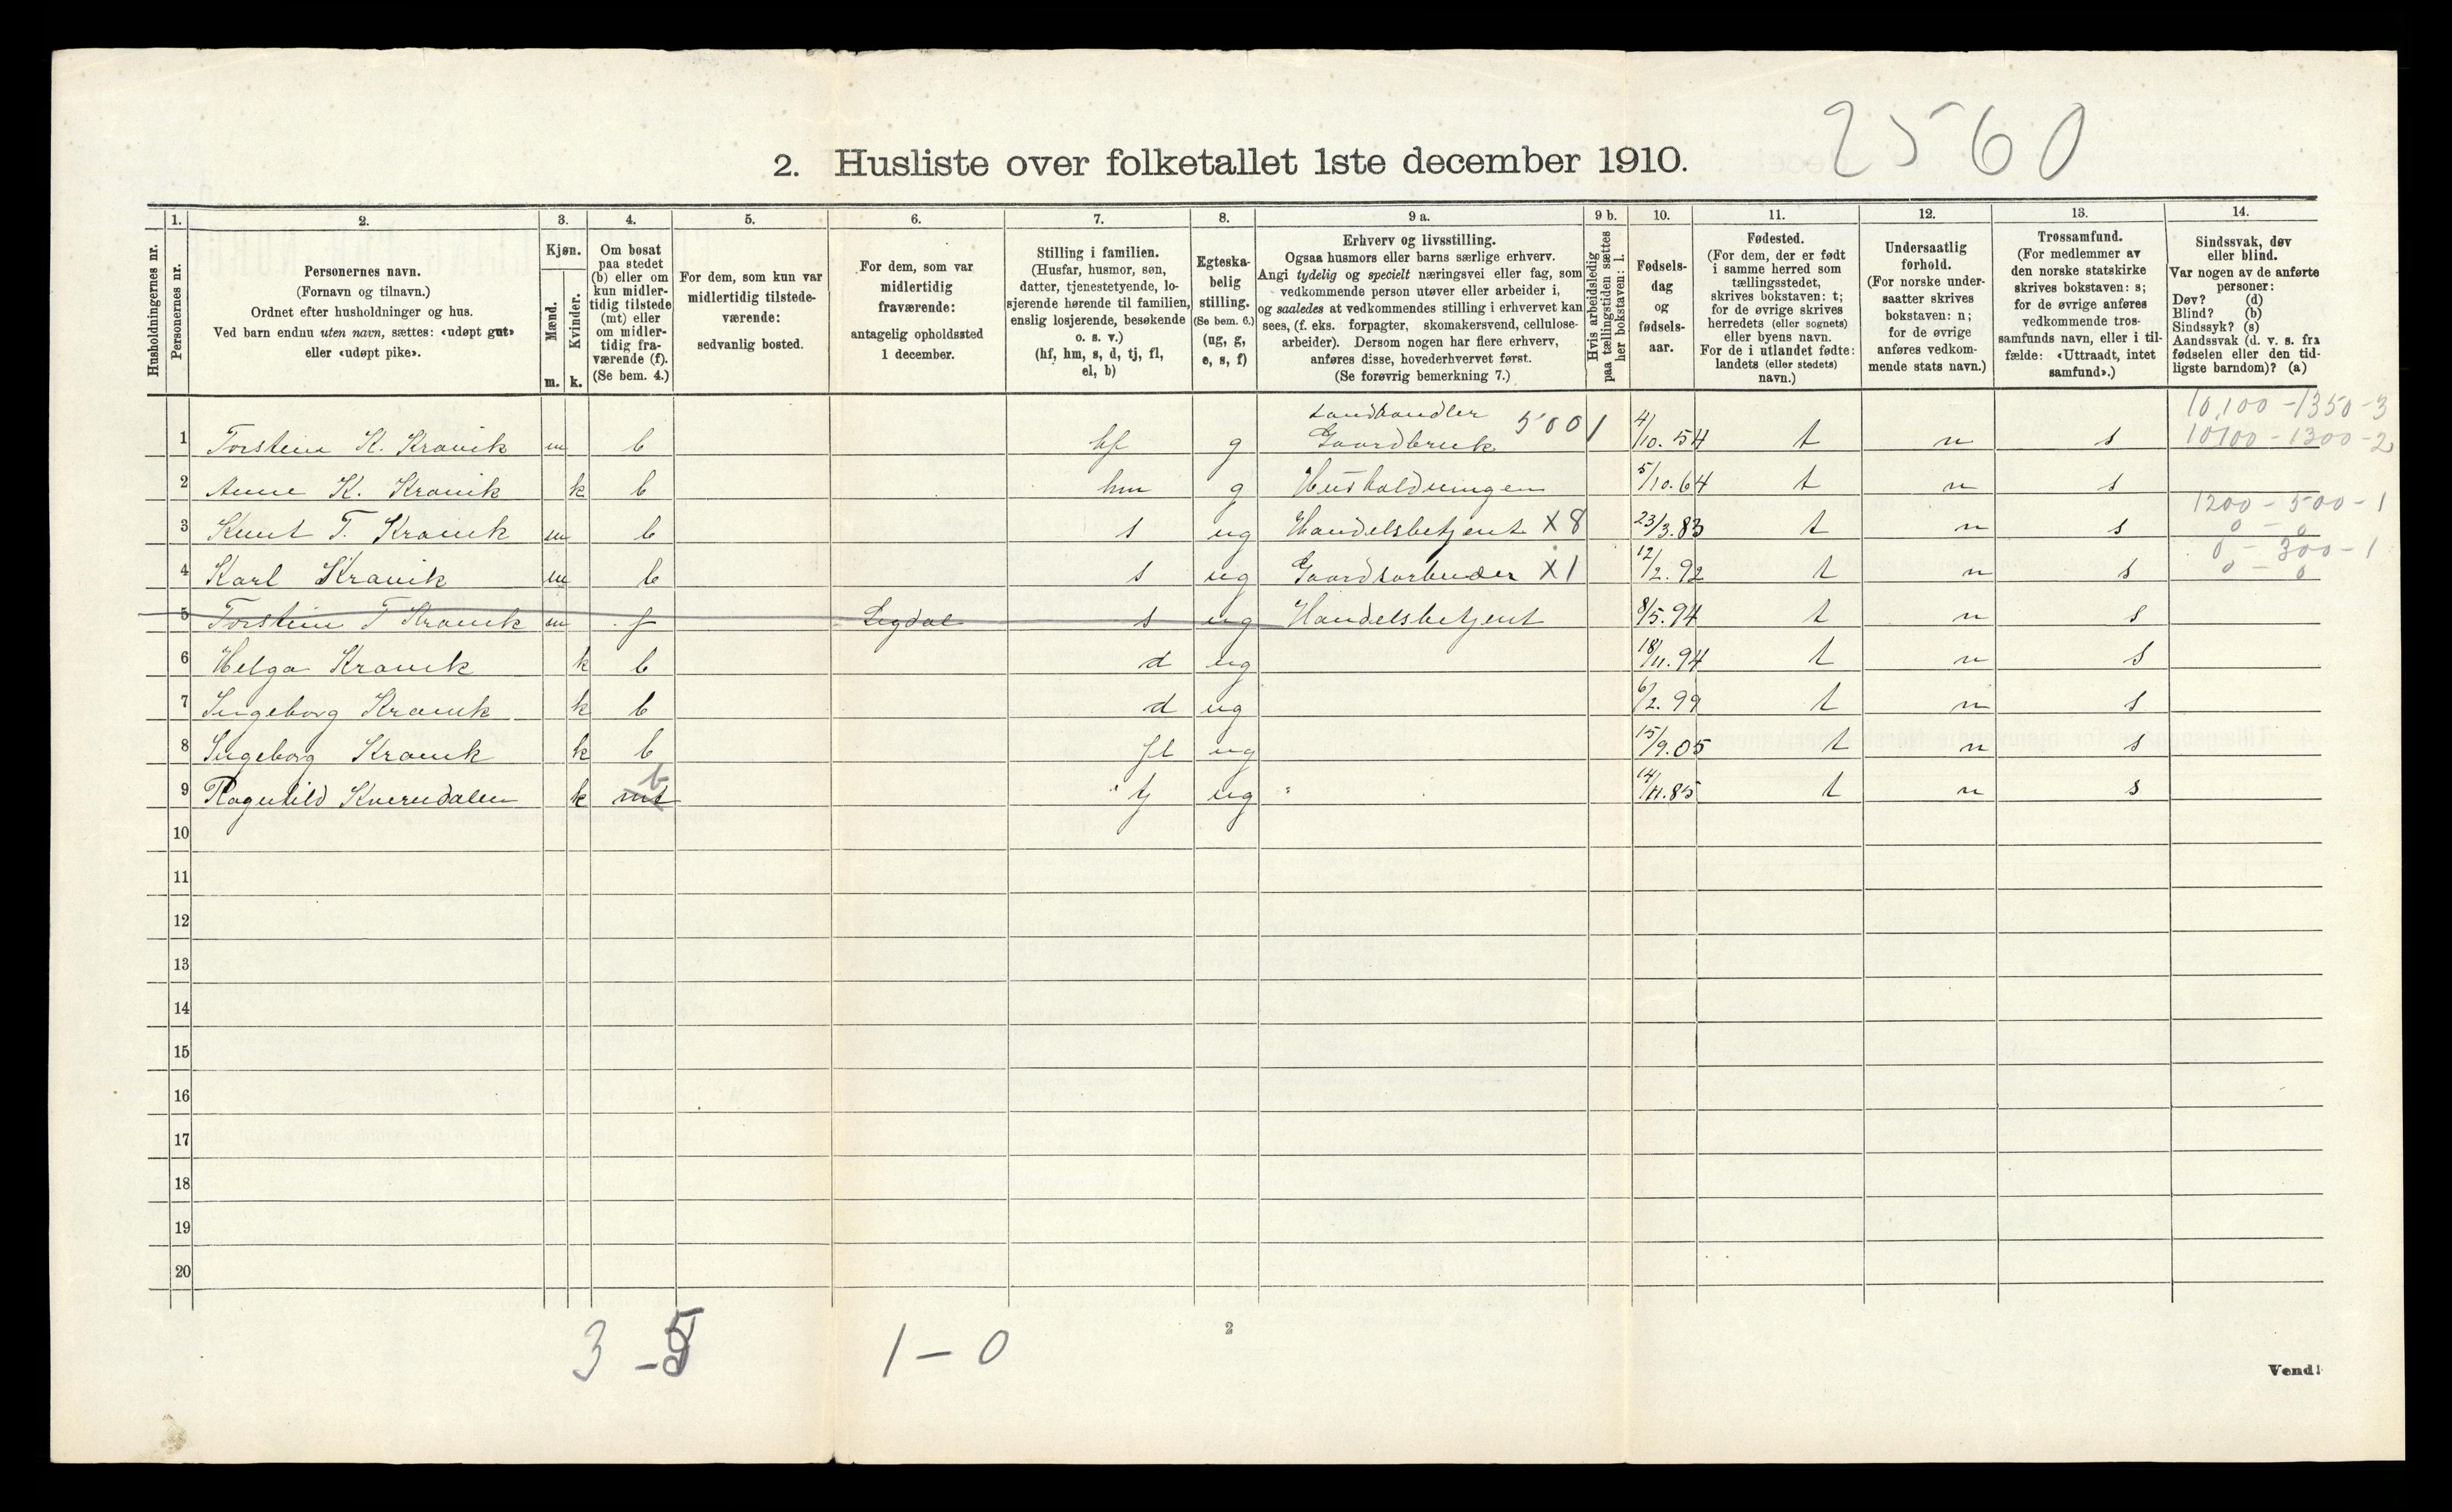 2560
2. Husliste over folketallet 1ste december 1910.
1. 2. 3. 4. 5. 6. 7. 8. 9 a. 9 b. 10. 11. 12. 13. 14.
Husholdningernes nr.
Personernes nr.
Personernes navn.
(Fornavn og tilnavn.)
Ordnet efter husholdninger og hus.
Ved barn endnu uten navn, sættes: «udøpt gut»
eller «udøpt pike».
Kjøn.
Mænd.
m.
Kvinder.
k.
Om bosat
paa stedet
(b) eller om
kun midler-
tidig tilstede
(mt) eller
om midler-
tidig fra-
værende (f).
(Se bem. 4.)
For dem, som kun var
midlertidig tilstede-
værende:
sedvanlig bosted.
For dem, som var
midlertidig
fraværende:
antagelig opholdssted
1 december.
Stilling i familien.
(Husfar, husmor, søn,
datter, tjenestetyende, lo-
sjerende hørende til familien,
enslig losjerende, besøkende
o. s. v.)
(hf, hm, s, d, tj, fl,
el, b)
Egteska-
belig
stilling.
(Se bem. 6.)
(ug, g,
e, s, f)
Erhverv og livsstilling.
Ogsaa husmors eller barns særlige erhverv.
Angi tydelig og specielt næringsvei eller fag, som
vedkommende person utøver eller arbeider i,
og saaledes at vedkommendes stilling i erhvervet kan
sees, (f. eks. forpagter, skomakersvend, cellulose-
arbeider). Dersom nogen har flere erhverv,
anføres disse, hovederhvervet først.
(Se forøvrig bemerkning 7.)
Hvis arbeidsledig
paa tællingstiden sættes
her bokstaven: l.
Fødsels-
dag
og
fødsels-
aar.
Fødested.
(For dem, der er født
i samme herred som
tællingsstedet,
skrives bokstaven: t;
for de øvrige skrives
herredets (eller sognets)
eller byens navn.
For de i utlandet fødte:
landets (eller stedets)
navn.)
Undersaatlig
forhold.
(For norske under-
saatter skrives
bokstaven: n;
for de øvrige
anføres vedkom-
mende stats navn.)
Trossamfund.
(For medlemmer av
den norske statskirke
skrives bokstaven: s;
for de øvrige anføres
vedkommende tros-
samfunds navn, eller i til-
fælde: «Uttraadt, intet
samfund».)
Sindssvak, døv
eller blind.
Var nogen av de anførte
personer:
Døv? (d)
Blind? (b)
Sindssyk? (s)
Aandssvak (d. v. s. fra
fødselen eller den tid-
ligste barndom)? (a)
Landhandler 5001 10,100-1350-3
1 Torstein K. Kravik m b hf g Gaardbruk 4/10. 54 t n s 10100-1300-2
2 Anne K. Kravik k b hm g Husholdningen 5/10. 64 t n s
1200-500-1
3 Knut T. Kravik m b s ug Handelsbetjent X8 23/3. 83 t n s 0-0
0-300-1
4 Karl Kravik m b s ug Gaardsarbeider X1 12/2. 92 t n s 0-0
5 Torstein T Kravik m f Sigdal s ug Handelsbetjent 8/5. 94 t n s
6 Helga Kravik k b d ug 18/11. 94 t n s
7 Ingeborg Kravik k b d ug 6/2. 99 t n s
8 Ingeborg Kravik k b fl ug 15/9. 05 t n s
b
9 Ragnhild Kverndalen k mt tj ug " 14/11. 85 t n s
10
11
12
13
14
15
16
17
18
19
20
3-5 1-0
2
Vend!